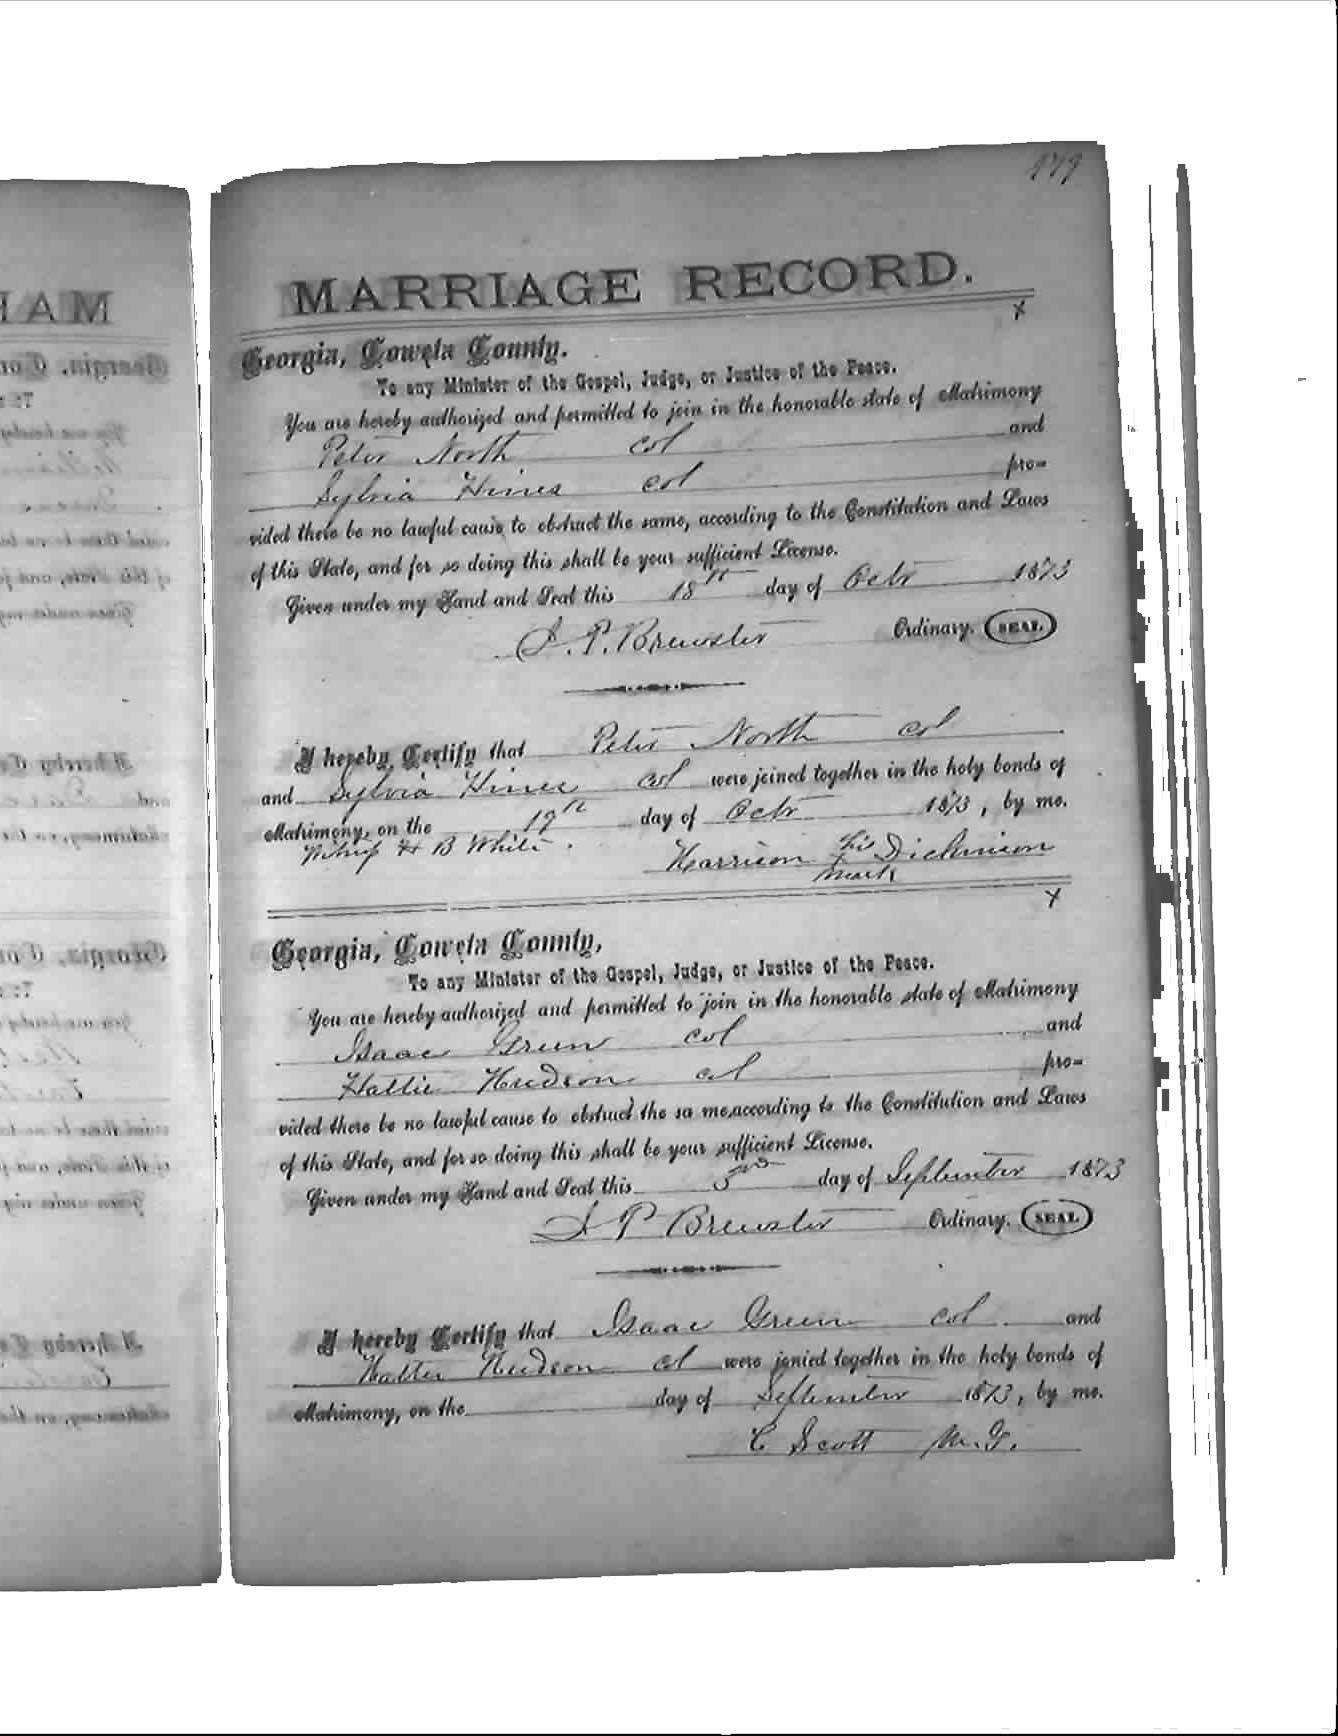 179
MARRIAGE RECORD.
x
Georgia, Coweta County.
To any Minister of the Gospel, Judge, or Justice of the Peace.
You are hereby authorized and permitted to join in the honorable state of Matrimony
Peter North col and
Sylvia Hines col pro-
vided there be no lawful cause to obstruct the same, according to the Constitution and Laws
of this State, and for so doing this shall be your sufficient License.
Given under my Hand and Seal this 18th day of Octr 1873
J. P. Brewster Ordinary. SEAL
I hereby Certify that Peter North col
and Sylvia Hines col were joined together in the holy bonds of
Matrimony, on the 19th day of Octr 1873, by me.
H B White.
Harrison his x mark Dickinson
x
Georgia, Coweta County,
To any Minister of the Gospel, Judge, or Justice of the Peace.
You are hereby authorized and permitted to join in the honorable state of Matrimony
Isaac Green col and
Hattie Hudson col pro-
vided there be no lawful cause to obstruct the sa me,according to the Constitution and Laws
of this State, and for so doing this shall be your sufficient License.
Given under my Hand and Seal this 3rd day of September 1873
J P Brewster Ordinary. SEAL
I hereby Certify that Isaac Green col and
Hattie Hudson col were jonied together in the holy bonds of
Matrimony, on the day of September 1873, by me.
C Scott M.G.